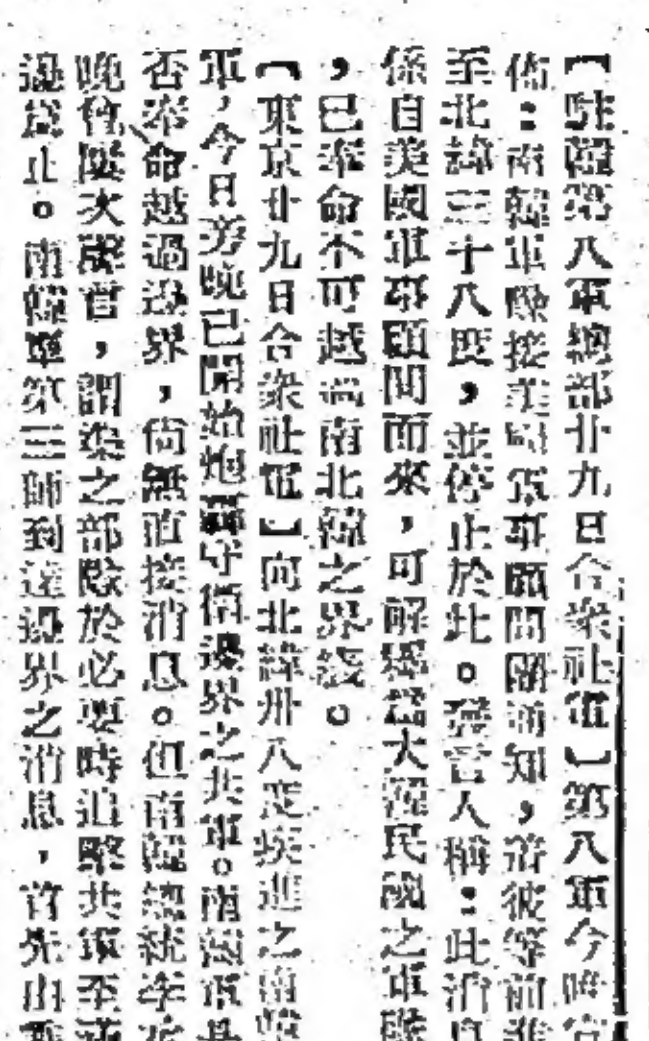 【駐韓第八軍總部廿九日合衆社電】第八軍今晚宣
佈：南韓軍隊接美國軍事顧問團通知，着彼等前進
至北緯三十八度，並停止於此。發言人稱：此消息
係自美國軍事顧問而來，可解釋爲大韓民國之軍隊
，已奉命不可越過南北韓之界綫。
【東京廿九日合衆社電】向北緯卅八度挨進之南韓
軍，今日旁晚已開始炮轟守衛邊界之共軍。南韓軍是
否奉命越過邊界，尙無直接消息。但南韓總統李承
晚曾屢次聲言，謂渠之部隊於必要時追擊共軍至
邊爲止。南韓軍第三師到達邊界之消息，首先由